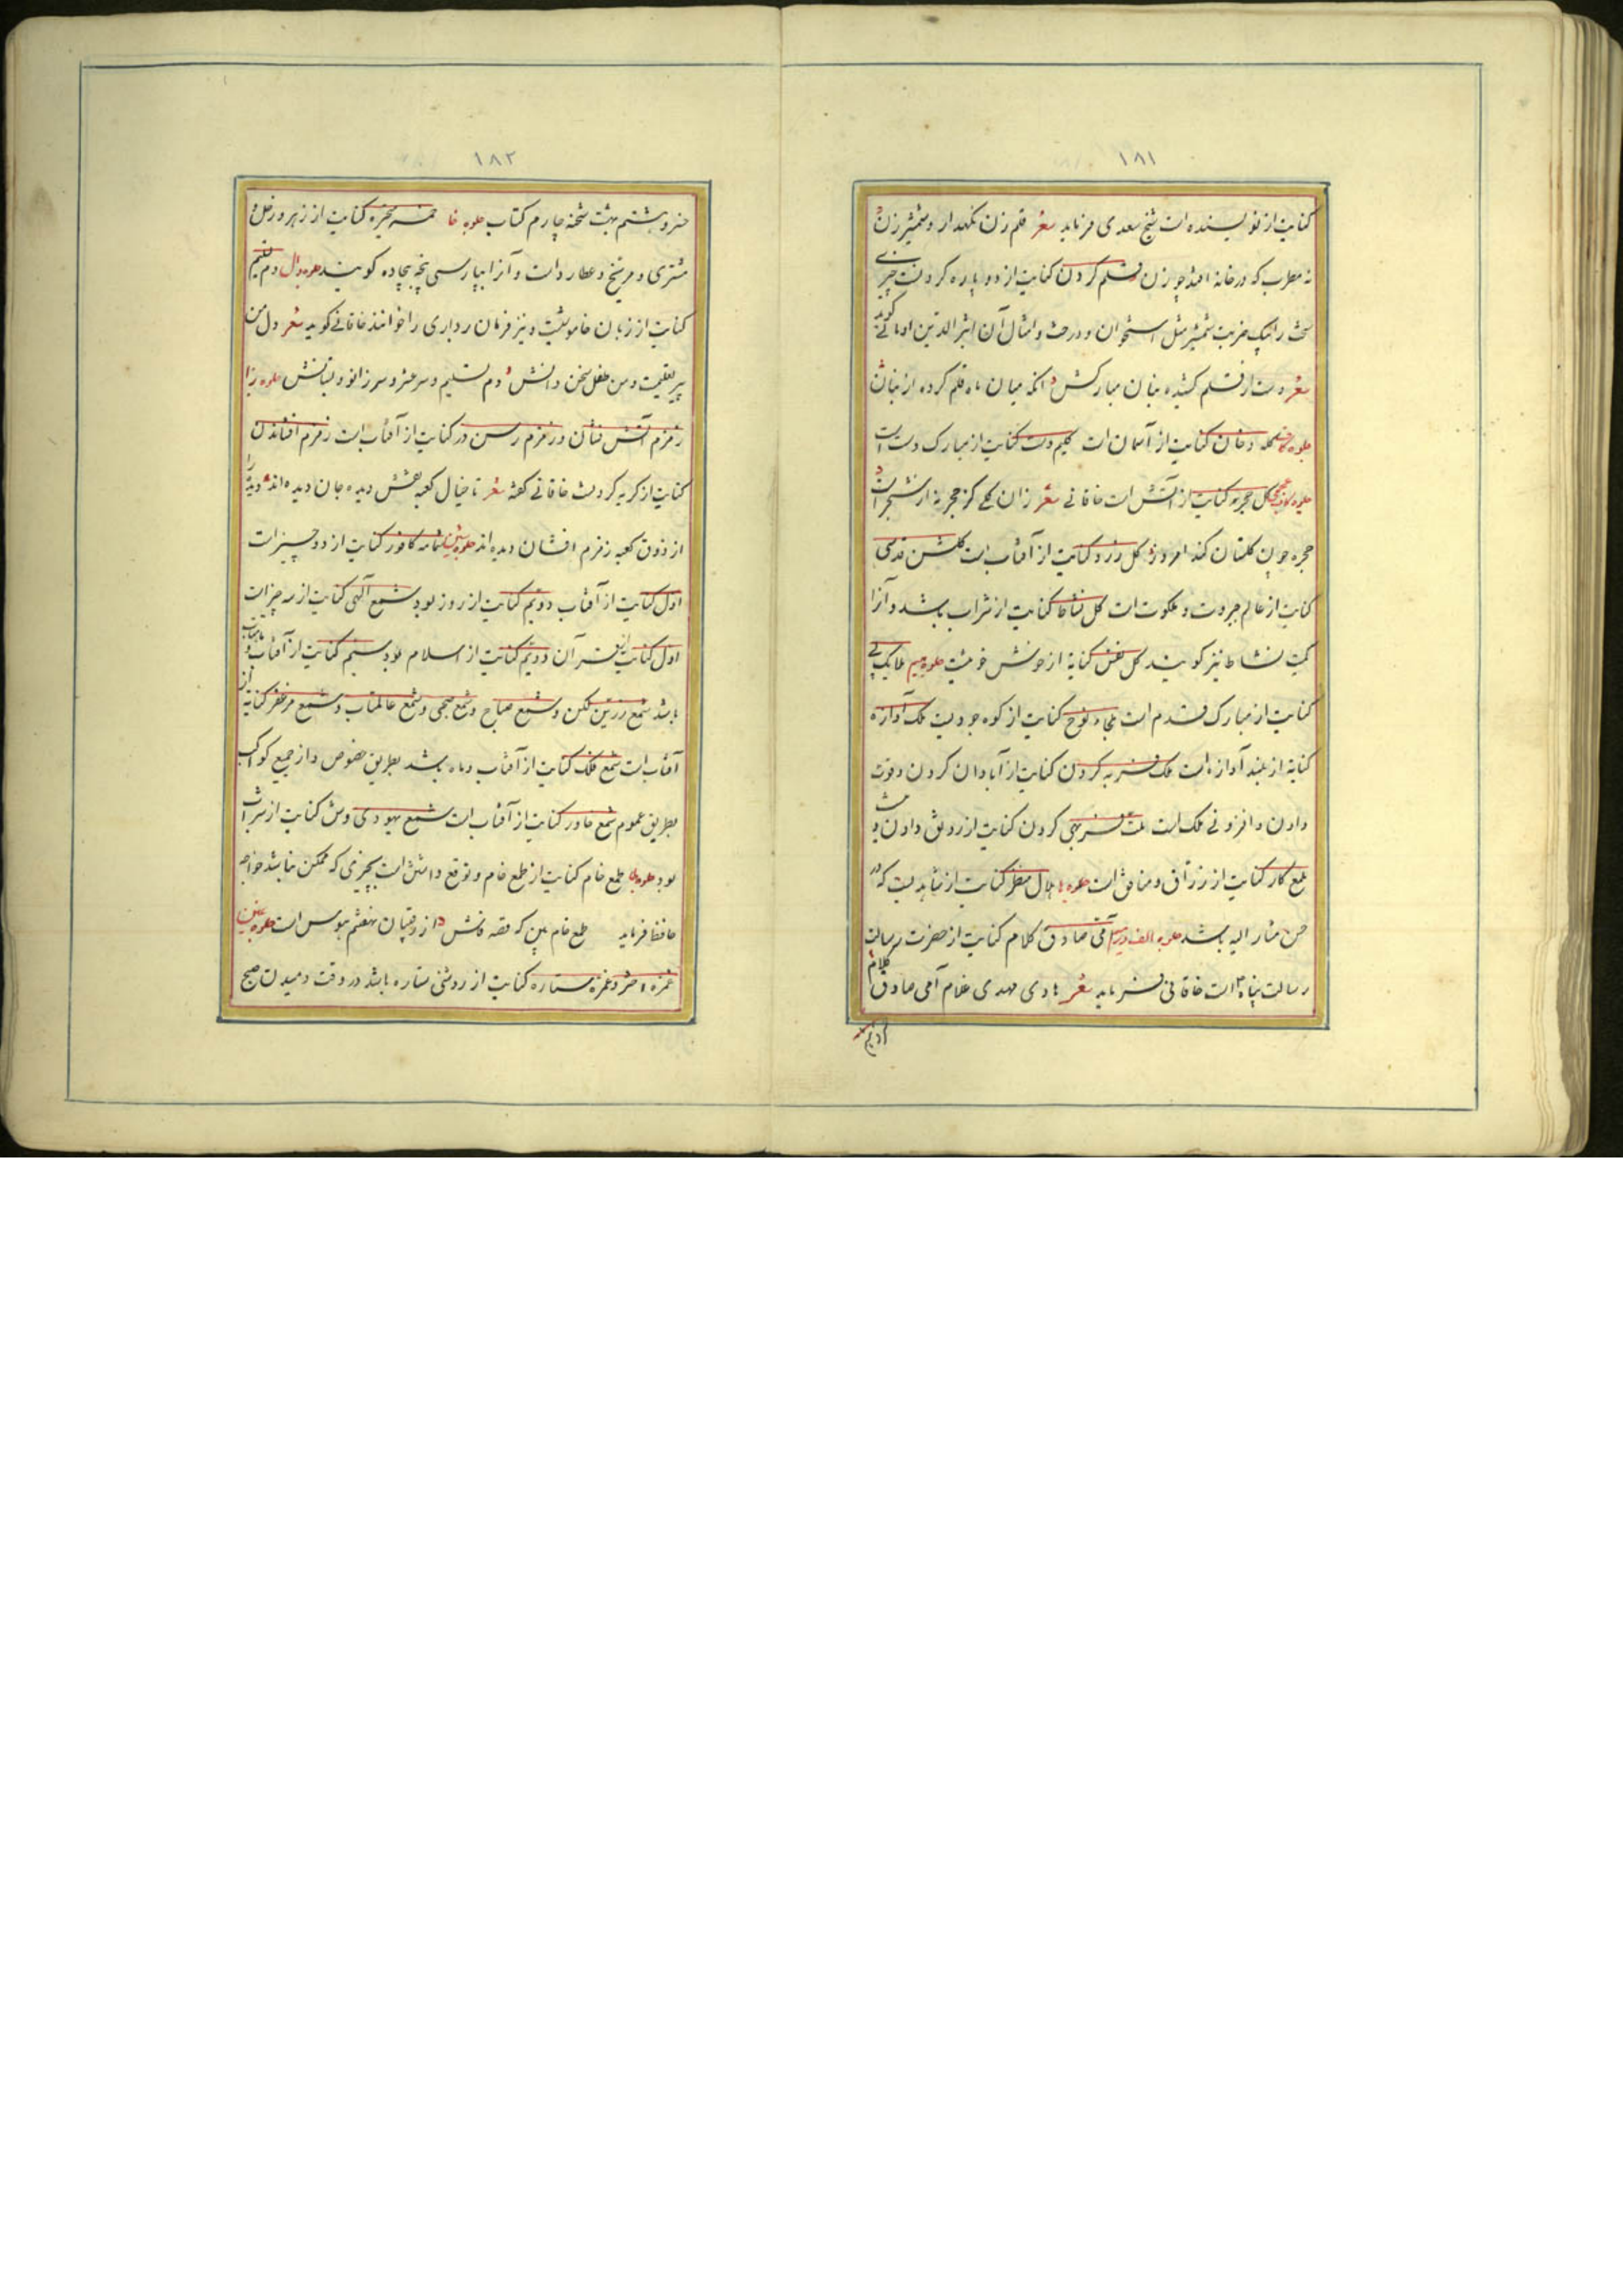 ۱۸۱
کنایت از نویسنده است شیخ سعدی فرماید شعر قلم زن نکهدار و شمشیر زن
نه مطرب که در خانه افتد چو زن قلم کردن کنایت از دو پاره کردنست چیزی
سخت را بیک ضربت شمشیر مثل استخوان و درخت و امثال آن اثیر الدین اومانی گوید
شعر دست از قلم کشیده بنان مبارکش انکه میان ماه قلم کرده از بنان
کله دخان کنایت از آسمان است کلیم دست کنایت از مبارک دست است
کل حجره کنایت از آتش است خاقانی شعر زان کلی کز حجره
حجره چون کلستان کند امروز کل زرد کنایت از آفتاب است کلشن قدسی
کنایت از عالم جبروت و ملکوت است کل نشاط کنایت از شراب باشد و آنرا
کمیت نشاط نیز کویند کل نفس کنایة از خوش خوئیست جلوه میم ملایک پی
کنایت از مبارک قدم است ملجاء نوح کنایت از کوه جودیست ملک آوازه
کنایة از بلند آوازه است ملک فربه کردن کنایت از آبادان کردن و قوت
دادن و افزونی ملک است ملت فربهی کردن کنایت از رونق دادن
ملمع کار کنایت از رزاق و منافق است جلوه ها هلال منظر کنایت از شاهدیست که در
حسن مشار الیه باشد جلوه الف امی صادق کلام کنایت از حضرت رسالت
رسالت پناه است خاقانی فرماید شعر هادی مهدی غلام آمی صادق کلام
۱۸۲
خسرو هشتم بهشت شحنه چارم کتاب جلوه خا خمسه متحیره کنایت از زهره و زحل و
مشتری و مریخ و عطارد است و آنرا بپارسی پنجه بیچاده کویند جلوه دال دم تسلیم
کنایت از زبان خاموشیست و نیز فرمان برداری را خوانند خاقانی کوید شعر دل من
پیر تعلیمست و من طفل سخن دانش دم تسلیم و سر عشر و سر زانو دبستانش جلوه زا
زمزم آتش فشان و زمزم رسن در کنایت از آفتاب است زمزم افشاندن
کنایت از کریه کردنست خاقانی کفته شعر تا خیال کعبه نقش دیده جان دیده اند دیده را
از ذوق کعبه زمزم افشان دیده اند جلوه شین شمامه کافور کنایت از دو چیز است
اول کنایت از آفتاب دویم کنایت از روز بود شمع آلهی کنایت از سه چیز است
اول کنایت از قرآن دویم کنایت از اسلام بود سیم کنایت از آفتاب و ماهتاب
باشد شمع زرین لکن و شمع صباح و شمع صبحی و شمع عالمتاب و شمع مزعفر کنایة از
آفتاب است شمع فلک کنایت از آفتاب و ماه باشد بطریق خصوص و از جمیع کواکب
بطریق عموم شمع خاور کنایت از آفتاب است شمع یهودی وش کنایت از شراب
بود جلوه طا طمع خام کنایت از طمع خام و توقع داشتن است بچیزی که ممکن نباشد خواجه
حافظ فرماید طمع خام بین که قصه فاش از رقیبان نهفتنم هوس است جلوه غین
غمزه اختر و غمزه ستاره کنایت از روشنی ستاره باشد در وقت دمیدن صبح